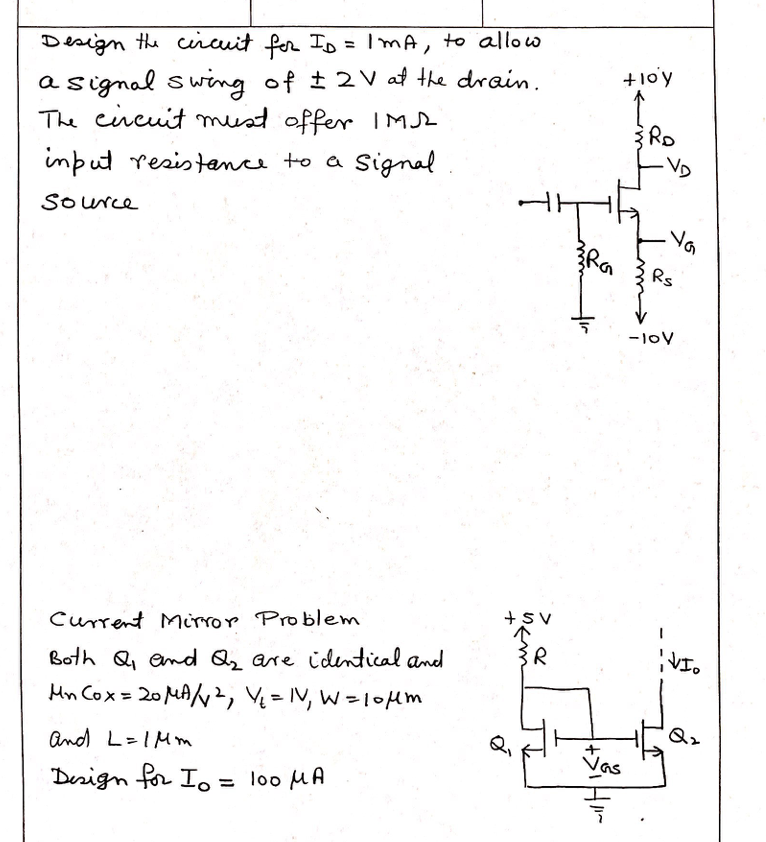 Design the circuit for I_D = 1mA, to allow
a signal swing of ± 2V at the drain.
The circuit must offer 1MΩ
input resistance to a signal
source
+10V
R_D
V_D
V_G
R_G
R_S
-10V
Current Mirror Problem
Both Q₁ and Q₂ are identical and
μnCox = 20 μA/V², V_t = 1V, W = 10μm
and L = 1μm
Design for I_o = 100 μA
+5V
R
↓I_o
Q₁
Q₂
+
V_GS
-